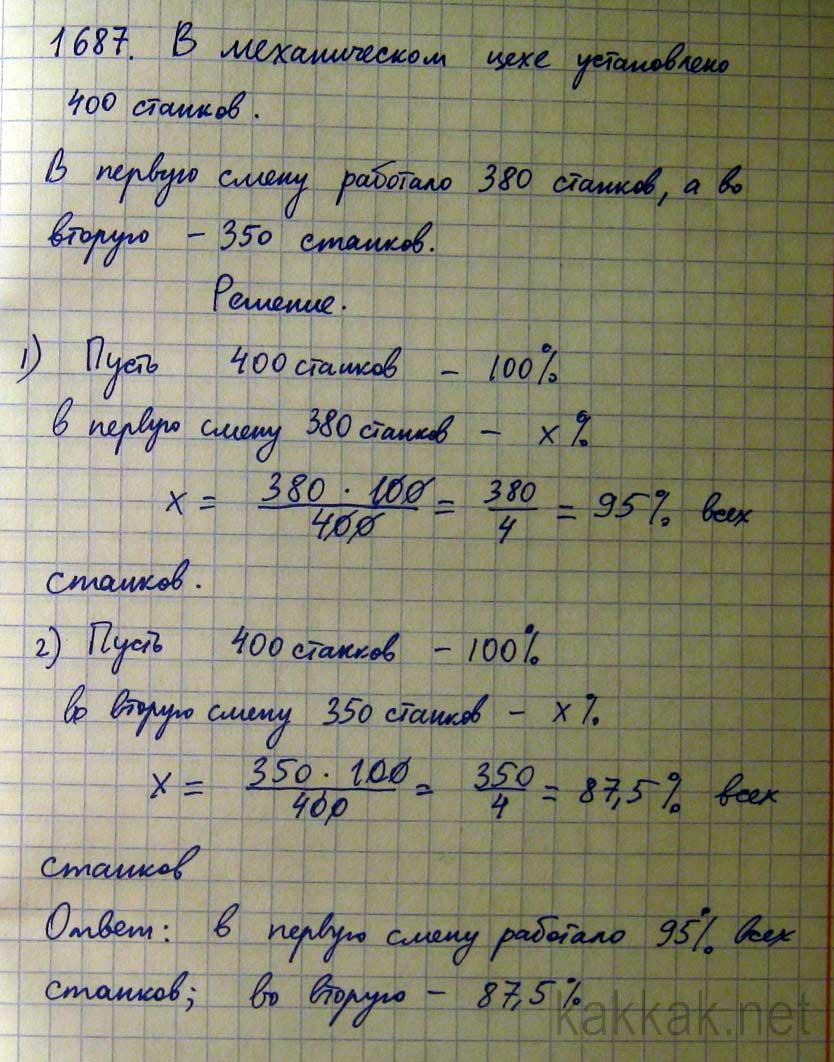 1687. В механическом цехе установлено
400 станков.
В первую смену работало 380 станков, а во
вторую – 350 станков.
Решение.
1) Пусть 400 станков – 100%
в первую смену 380 станков – x%
x = 380 · 100 / 400 = 380 / 4 = 95% всех
станков.
2) Пусть 400 станков – 100%
во вторую смену 350 станков – x%
x = 350 · 100 / 400 = 350 / 4 = 87,5% всех
станков
Ответ: в первую смену работало 95% всех
станков; во вторую – 87,5%
kakkak.net